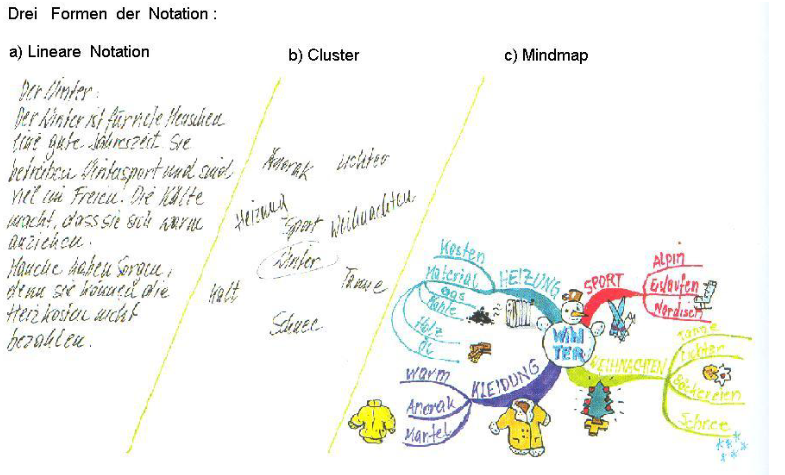 Drei Formen der Notation :
a) Lineare Notation
b) Cluster
c) Mindmap
Der Winter:
Der Winter ist für viele Menschen
eine gute Jahreszeit. Sie
betreiben Wintersport und sind
viel im Freien. Die Kälte
macht, dass sie sich warm
anziehen.
Manche haben Sorgen,
denn sie können die
Heizkosten nicht
bezahlen.
Anorak Lichter
Heizung
Sport Weihnachten
Winter
kalt Tanne
Schnee
WIN
TER
HEIZUNG
Kosten
Material
Gas
Kohle
Holz
Öl
SPORT
Alpin
Eislaufen
Nordisch
KLEIDUNG
warm
Anorak
Mantel
WEIHNACHTEN
Lichter
Bäckereien
Schnee